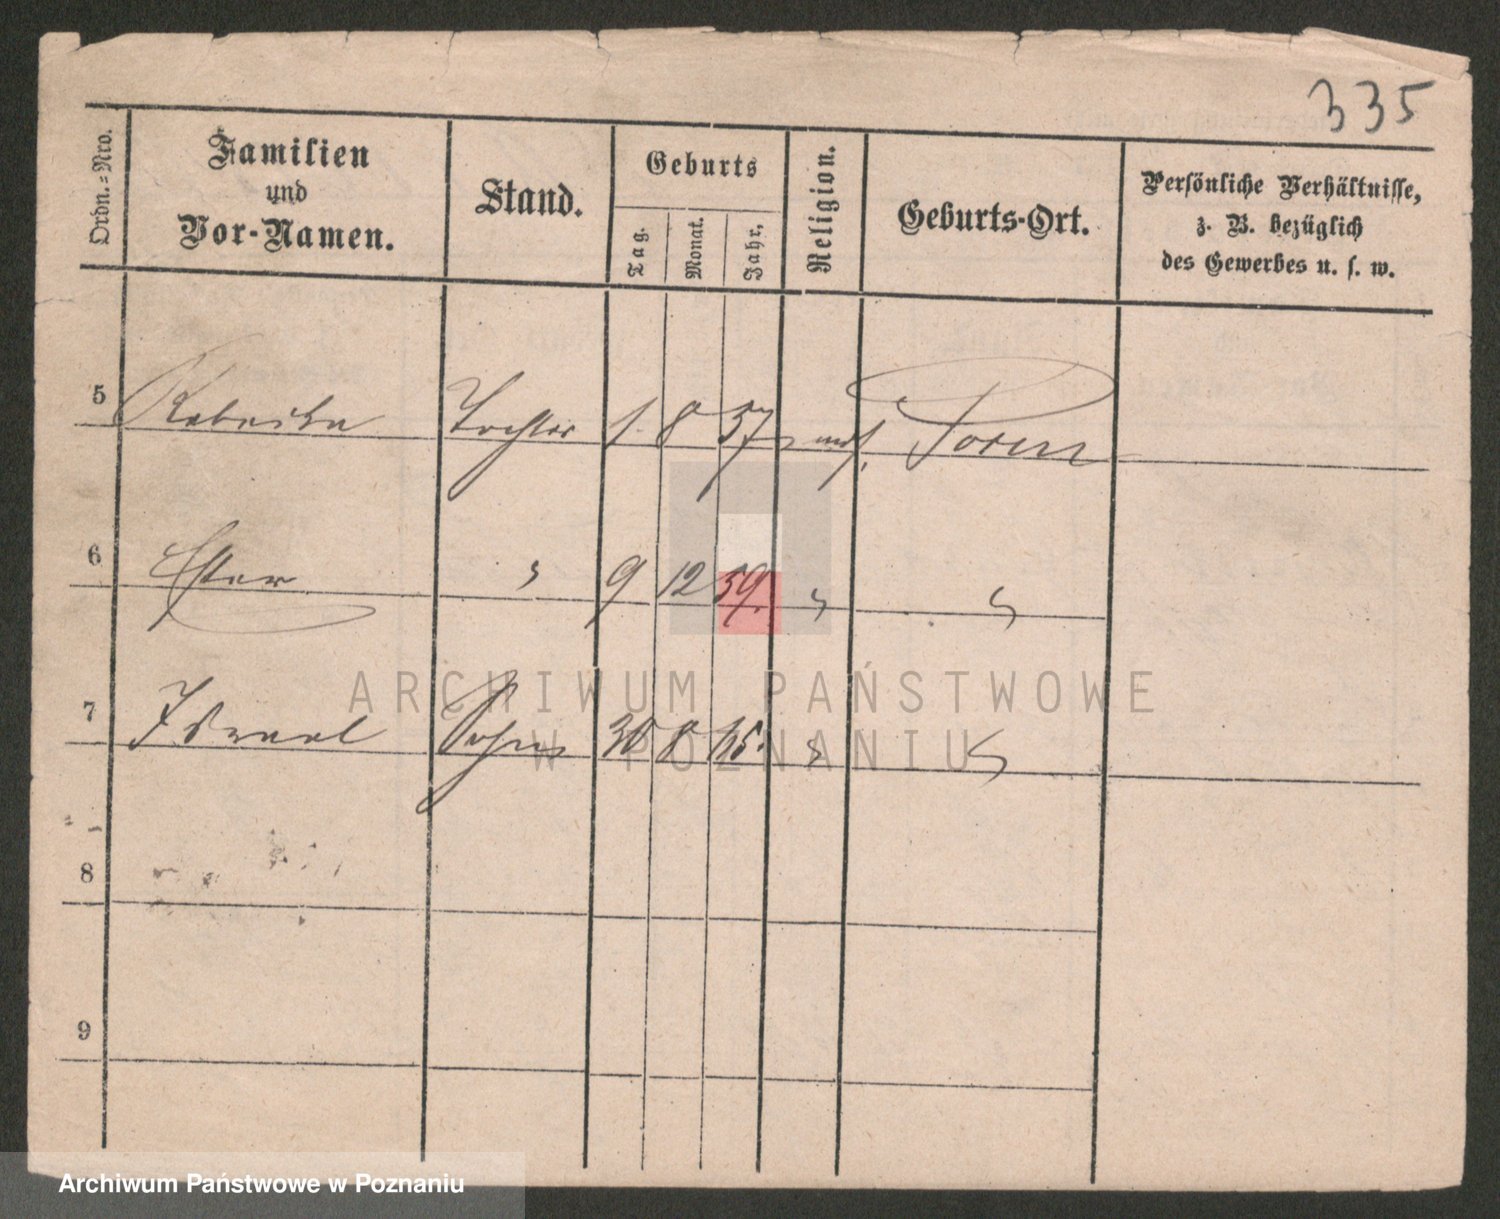 335
Ordn.-Nro.
Familien
und
Vor-Namen.
Stand.
Geburts
Tag.
Monat.
Jahr.
Religion.
Geburts-Ort.
Persönliche Verhältnisse,
z. B. bezüglich
des Gewerbes u. s. w.
5 Rebecka Tochter 1. 8 57 mos. Posen
6 Ester " 9 12 59. " "
7 Israel Sohn 30 8 " "
8
9
ARCHIWUM PAŃSTWOWE
W POZNANIU
Archiwum Państwowe w Poznaniu